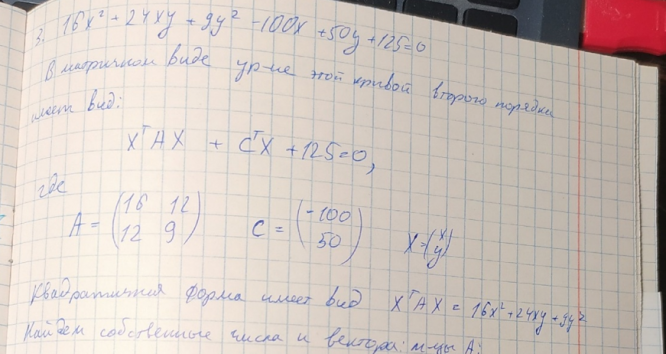 3. 16x² + 24xy + 9y² - 100x + 50y + 125 = 0
В матричном виде ур-ие этой кривой второго порядка
имеет вид:
XᵀAX + CᵀX + 125 = 0,
где
A = (16 12; 12 9) C = (-100; 50) X = (x; y)
Квадратичная форма имеет вид XᵀAX = 16x² + 24xy + 9y²
Найдем собственные числа и вектора: м-цы A: